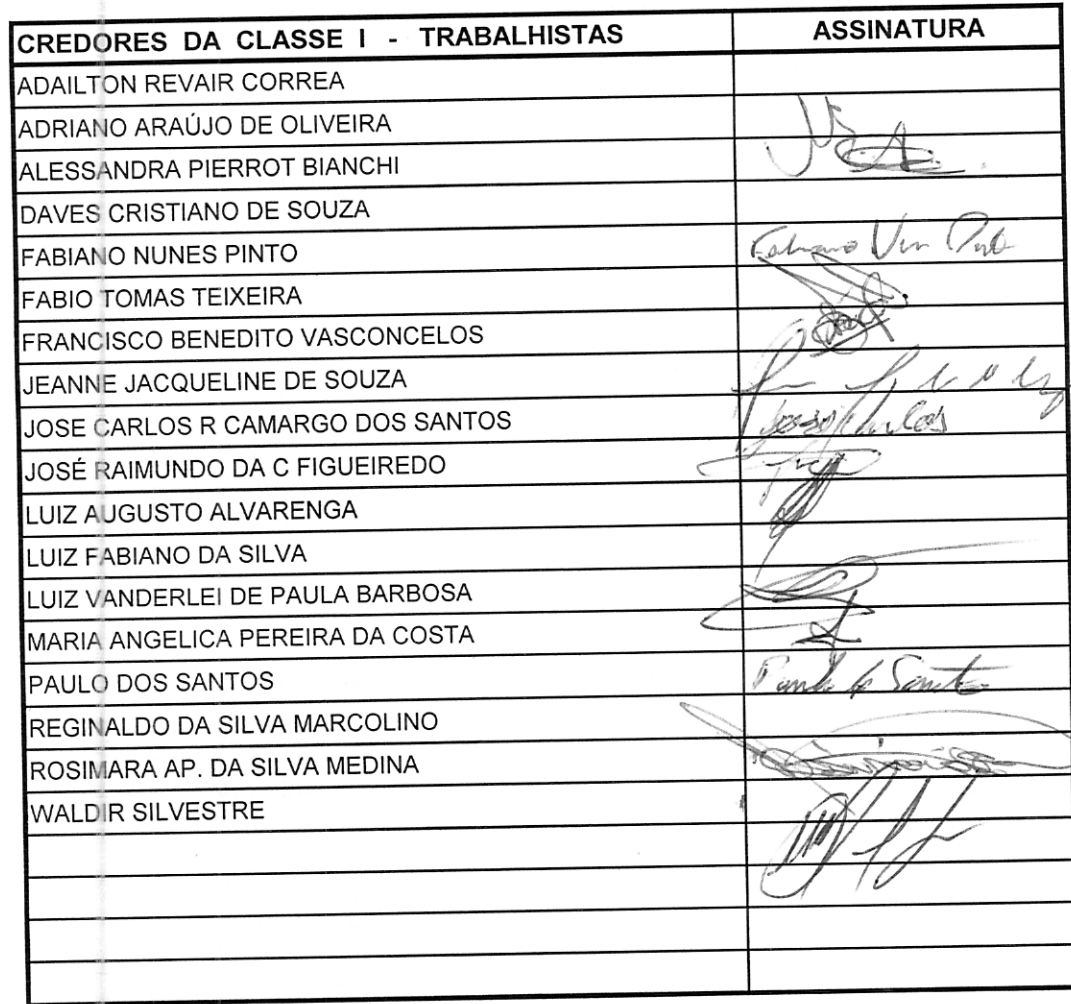 CREDORES DA CLASSE I - TRABALHISTAS ASSINATURA
ADAILTON REVAIR CORREA
ADRIANO ARAÚJO DE OLIVEIRA
ALESSANDRA PIERROT BIANCHI
DAVES CRISTIANO DE SOUZA
FABIANO NUNES PINTO Fabiano
FABIO TOMAS TEIXEIRA
FRANCISCO BENEDITO VASCONCELOS
JEANNE JACQUELINE DE SOUZA
JOSE CARLOS R CAMARGO DOS SANTOS
JOSÉ RAIMUNDO DA C FIGUEIREDO
LUIZ AUGUSTO ALVARENGA
LUIZ FABIANO DA SILVA
LUIZ VANDERLEI DE PAULA BARBOSA
MARIA ANGELICA PEREIRA DA COSTA
PAULO DOS SANTOS
REGINALDO DA SILVA MARCOLINO
ROSIMARA AP. DA SILVA MEDINA
WALDIR SILVESTRE